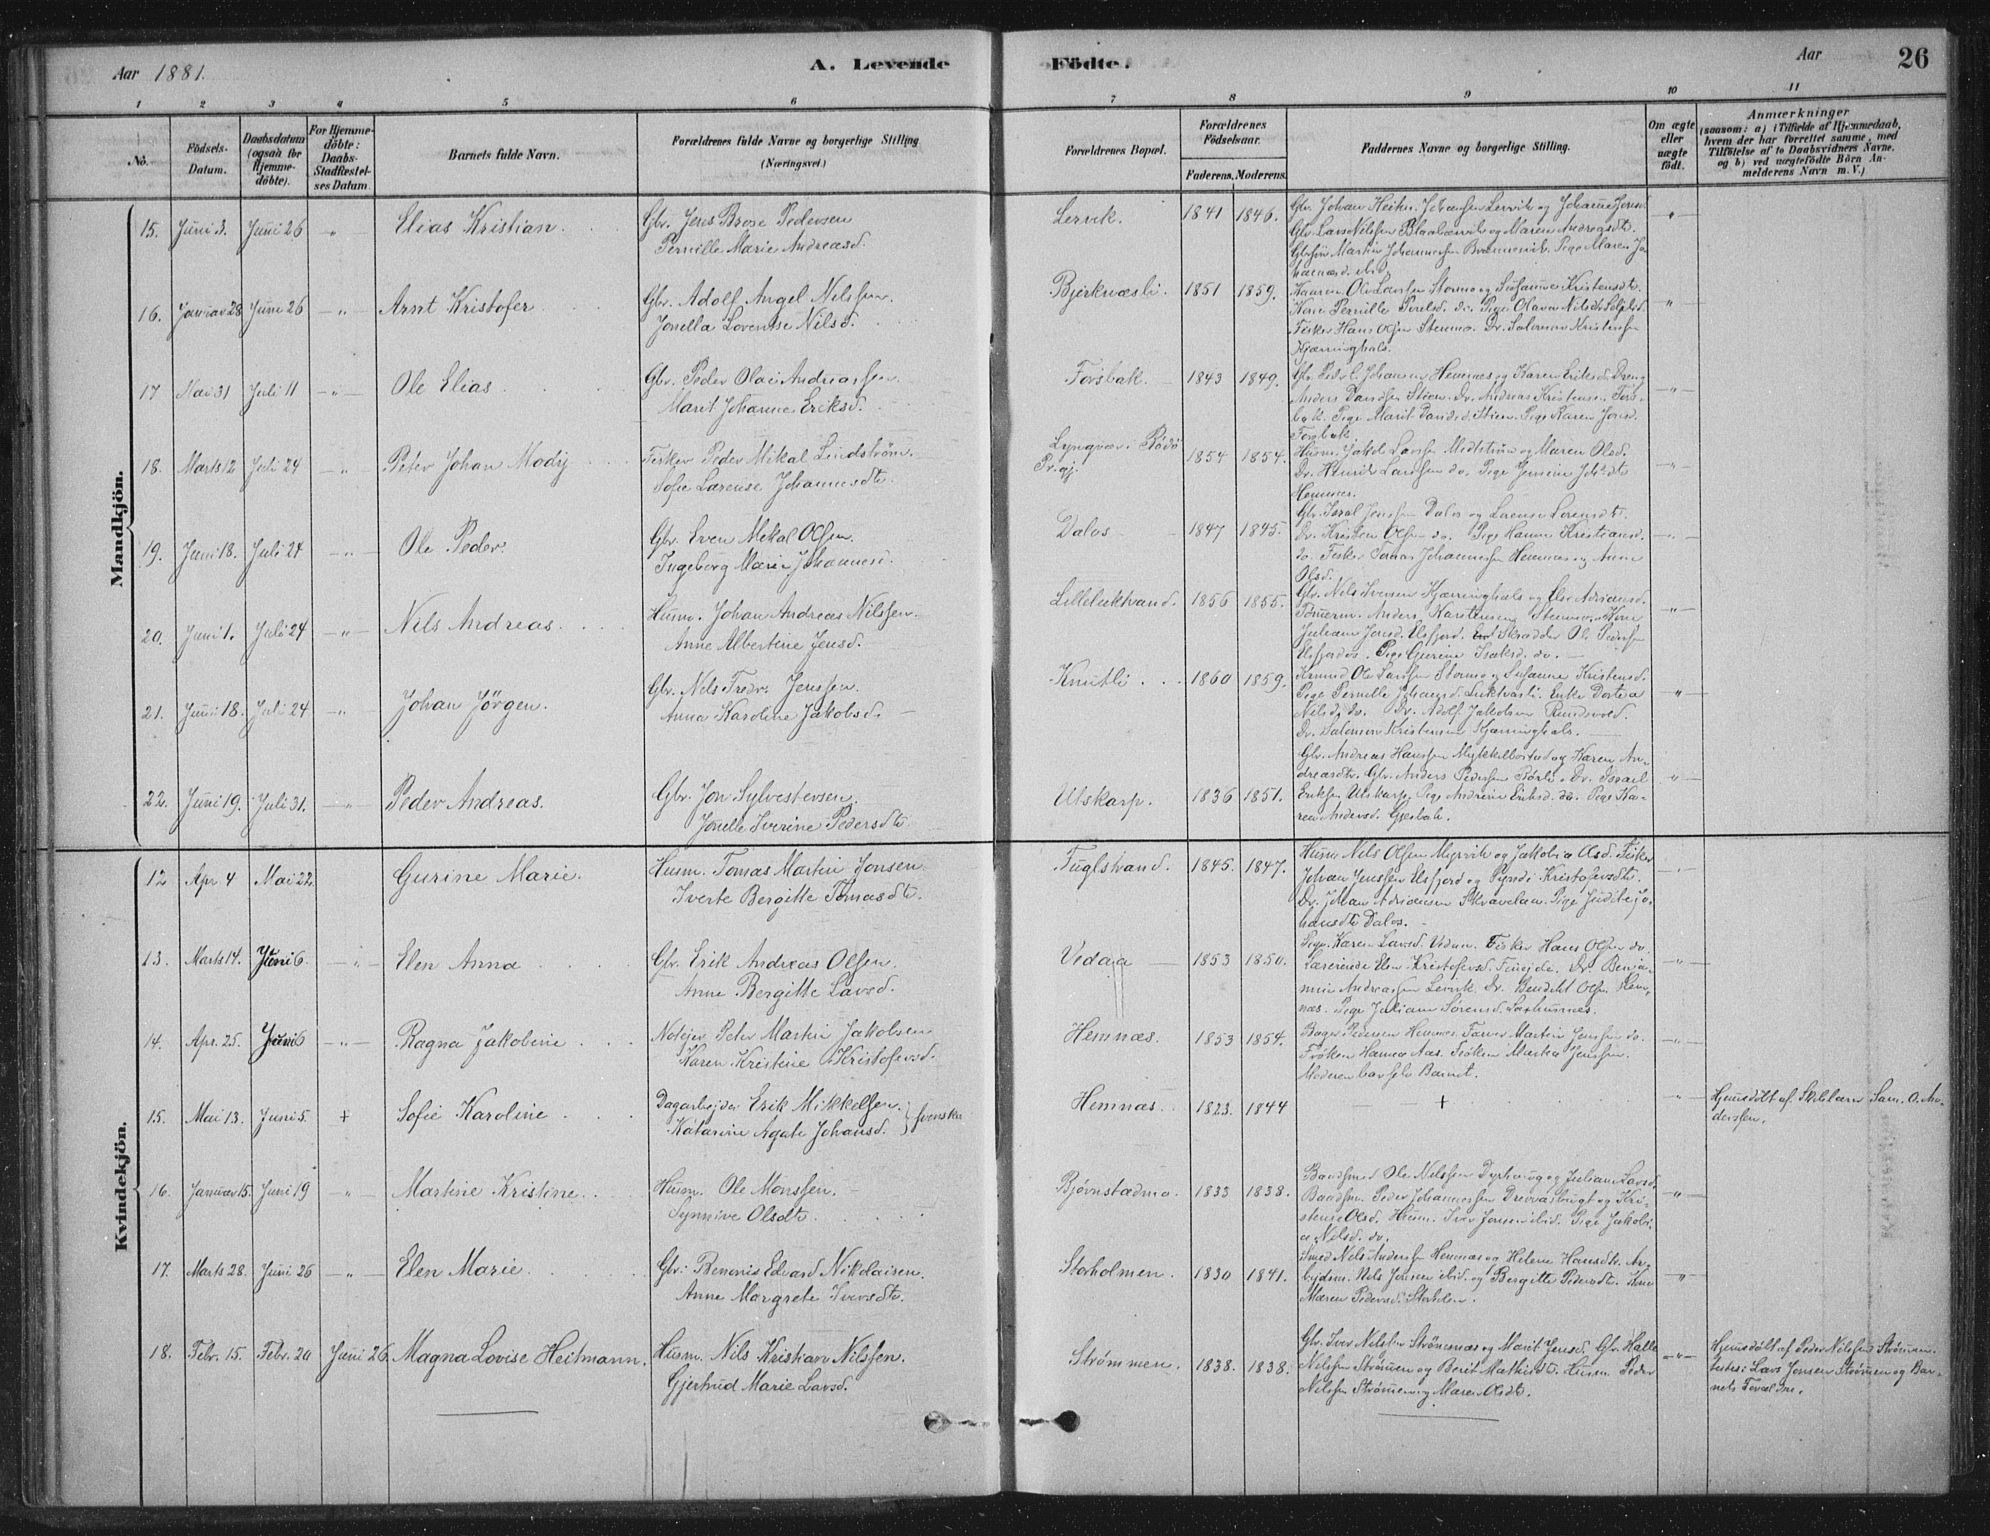 Aar 1881.
A. Levende
Födte.
Aar
26
1 2 3 4 5 6 7 8 9 10 11
No.
Födsels-
Datum.
Daabsdatum
(ogsaa for
Hjemme-
döbte).
For Hjemme-
döbte:
Daabs-
Stadfæstel-
ses Datum.
Barnets fulde Navn.
Forældrenes fulde Navne og borgerlige Stilling
(Næringsvei.)
Forældrenes Bopæl.
Forældrenes
Födselsaar.
Faderens. Moderens.
Faddernes Navne og borgerlige Stilling.
Om ægte
eller
uægte
födt.
Anmærkninger
(saasom: a) i Tilfælde af Hjemmedaab,
hvem der har forrettet samme, med
Tilföielse af to Daabsvidners Navne.
og b) ved uægtefödte Börn An-
melderens Navn m. V.)
Mandkjön.
15. Juni 3. Juni 26 „ Elias Kristian
Gbr. Jens Brose Pedersen
Pernille Marie Andreasd.
Lervik. 1841 1846.
Gbr. Johan Heitm. Johansen Lervik og Johanne Jensd.
Gbr. Lars Nilssen og Maren Andreasdt.
Gbrsøn Martin Johannessen Pige Maren Jo-
hannesd. ibid.
„
16. Januar 28 Juni 26 „ Arnt Kristofer
Gbr. Adolf Angel Nilssen
Jonella Lorentse Nilsd.
Bjerknæsli. 1851 1859.
Ole Larsen Stormo og Susanne Kristensdt.
Kone Pernille do. Pige Olava Nilsdt.
Fisker Hans Olsen Stormo. Dr. Salomon Kristensen
Kjærringhals.
„
17 Mai 31 Juli 11 „ Ole Elias
Gbr. Peder Olai Andreassen
Marit Johanne Eriksd.
Forsbak 1843 1849.
Gbr. Peder C. Johansen Hemnæs og Karen Eriksd. Dreng
Anders Danelsen Stien. Dr. Andreas Kristensen Fors-
bak. Pige Marit Stien. Pige Karen Jonsd.
Forsbak.
„
18. Marts 12 Juli 24 „ Peter Johan Mody
Fisker Peder Mikal Lindström
Sofie Larense Johannesdt.
Lyngvær i Rödö
Pr.gj. 1854 1854.
Husm. Jakob Larsen og Maren Olsd.
Dr. Henrik Larssen do. Pige Jensine Joh.dt
Hemnes.
„
19. Juni 18. Juli 24 „ Ole Peder
Gbr. Even Mekal Olsen
Ingeborg Marie Johannesd.
Dalos 1847 1845.
Gbr. Isral Jenssen Dalos og Lorense Lorensdt.
Dr. Kristen Olsen do. Pige Hanna Kristiansd.
do. Fisker Tomas Johannessen Hemnæs og Anne
Olsd.
„
20. Juni 1. Juli 24 „ Nils Andreas
Husm. Johan Andreas Nilssen
Anne Albertine Jensd.
Lilleluktvand. 1856 1855.
Gbr. Nils Iversen Kjærringhals og Else Adriansd.
Tømerm. Anders Karstensen Stormo. Kone
Juliane Jonsd. Elsfjord. Skredder Ole Pedersen
Elsfjord. Pige Gurine Isaksd. do.
„
21. Juni 18. Juli 24 „ Johan Jørgen.
Gbr. Nels Fredr. Jenssen.
Anna Karoline Jakobsd.
Knutli 1860 1859.
Ole Larssen Stormo og Susanne Kristensd.
Pige Pernille Johansd. Luktvasli. Enke Dortea
Nilsd. do. Dr. Adolf Jakobsen Rundvold.
Dr. Salomon Kristensen Kjærringhals.
„
22. Juni 19. Juli 31. „ Peder Andreas.
Gbr. Jon Sylvestersen
Jonelle Iverine Pedersdt.
Utskarp. 1836 1851.
Gbr. Andreas Hanssen Mykkelbostad og Karen An-
dreasdtr. Gbr. Anders Pedersen Dr. Israel
Eriksen Utskarp. Pige Andrine Eriksd. do. Pige Ka-
ren Andersd. Gjesbak.
„
Kvindekjön.
12 Apr 4 Mai 22. Gurine Marie.
Husm. Tomas Martin Jonsen
Iverte Bergitte Tomasdt.
Fuglstrand. 1845. 1847.
Husm. Nels Olsen Myrvik og Jakobia Olsd. Fisker
Johan Jenssen Elsfjord og Kristofersdt.
Dr. Johan Adriansen Skravelaa. Pige Judite Jo-
hansdt Dalos.
13. Marts 14. Juni 6. „ Elen Anna
Gbr. Erik Andreas Olsen
Anne Bergitte Larsd.
Vedaa 1853 1850.
Pige Karen Larsd. Vedaa. Fisker Hans Olsen do.
Lærerinde Elen Kristofersd. Dr. Benja-
min Andreassen Lervik. Dr. Bendikt Olsen Hem-
næs. Pige Juliane Sørensd.
„
14. Apr. 25. Juni 6 „ Ragna Jakobine
Notejer Peter Martin Jakobsen
Karen Kristine Kristofersd.
Hemnæs. 1853 1854.
Bager Pedersen Hemnæs. Farver Martin Jenssen do.
Frøken Hanna Aas. Frøken Marta Jenssen.
Moderen bar selv Barnet.
„
15. Mai 13. Juni 5. + Sofie Karoline
Dagarbejder Erik Mikkelsen
Katarine Agate Johansd. } svenske
Hemnæs. 1823. 1844
+
„
Hjemmedöbt af Skolelærer Sam. O. An-
derssen.
16. Januar 15. Juni 19 „ Martine Kristine
Husm. Ole Monssen
Synnive Olsdt.
Bjørnstadmo. 1833 1838.
Baadsmd. Ole Nilssen og Juliane Larsd.
Baadsm. Peder Johannessen og Kri-
stense Olsd. Husm. Iver Jonsen ibid. Pige Jakobi-
a Nilsd. do.
„
17. Marts 28. Juni 26 „ Elen Marie
Gbr. Benonis Edvard Nikolaisen.
Anne Margrete Iversdt.
Storholmen. 1830 1841.
Smed Nels Anderssen Hemnæs og Helene Hansdt. Ar-
bejdsm. Nels Jensen ibid. og Bergitte Pedersdt. Kone
Maren Pedersd. Storholm.
„
18. Febr. 15. Febr. 20 Juni 26. Magna Lovise Heitmann.
Husm. Nils Kristian Nilssen.
Gjertrud Marie Larsd.
Strømmen. 1838. 1838.
Gbr. Iver Nilsen Strømnæs og Marit Jensd. Gbr. Halle
Nilssen Strømen og Berit Matisdt. Husm. Peder
Nilssen Strømen og Maren Olsdt.
„
Hjemmedöbt af Peder Nilssen Strømen
testes: Lars Jonsen Strømen og Bar-
nets Foræl dre.